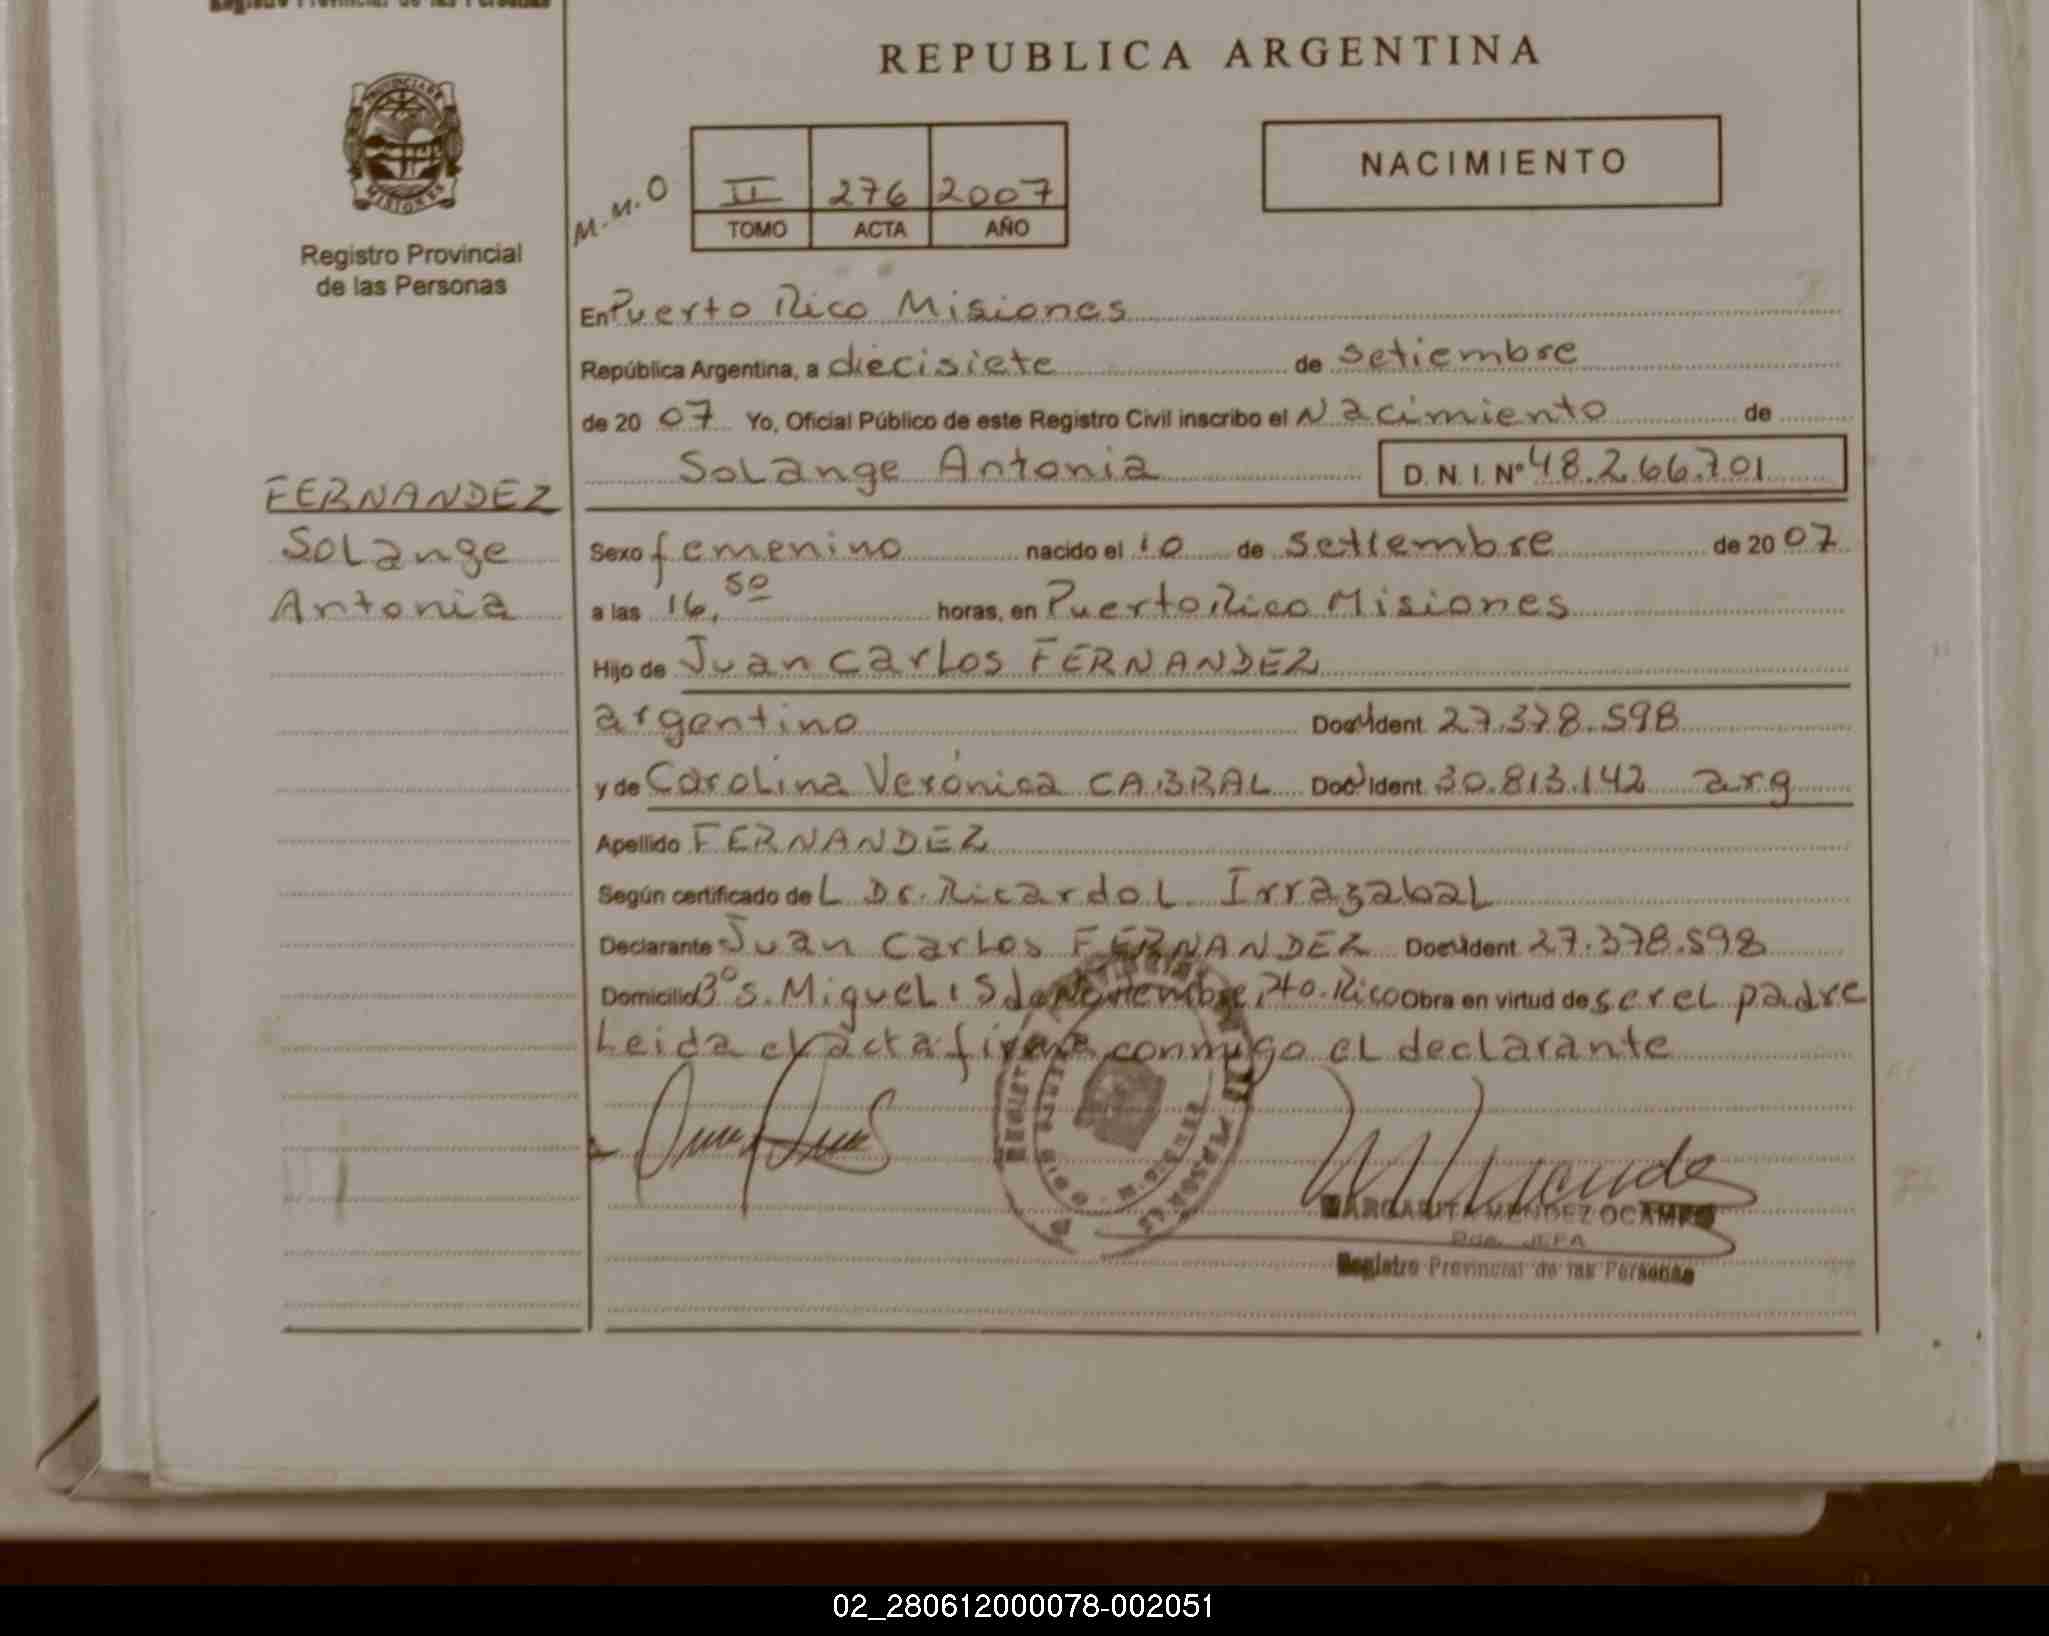 Registro Provincial de las Personas
REPUBLICA ARGENTINA
PROVINCIA DE
MISIONES
Registro Provincial
de las Personas
M.M.O
II 276 2007
TOMO ACTA AÑO
NACIMIENTO
En Puerto Rico Misiones
República Argentina, a diecisiete de setiembre
de 20 07 Yo, Oficial Público de este Registro Civil inscribo el Nacimiento de
Solange Antonia D.N.I. Nº 48.266.701
FERNANDEZ
Solange
Antonia
Sexo femenino nacido el 10 de setiembre de 20 07
a las 16,50 horas, en Puerto Rico Misiones
Hijo de Juan Carlos FERNANDEZ
argentino Ident. 27.378.598
y de Carolina Verónica CABRAL Ident. 30.813.142 arg
Apellido FERNANDEZ
Según certificado del Dr. Ricardo L. Irrazabal
Declarante Juan Carlos FERNANDEZ Ident. 27.378.598
Domicilio Bº S. Miguel 15 de Noviembre, Pto. Rico Obra en virtud de ser el padre
Leida el acta firma conmigo el declarante
MARGARITA MENDEZ OCAMPO
JEFA
Registro Provincial de las Personas
02_280612000078-002051